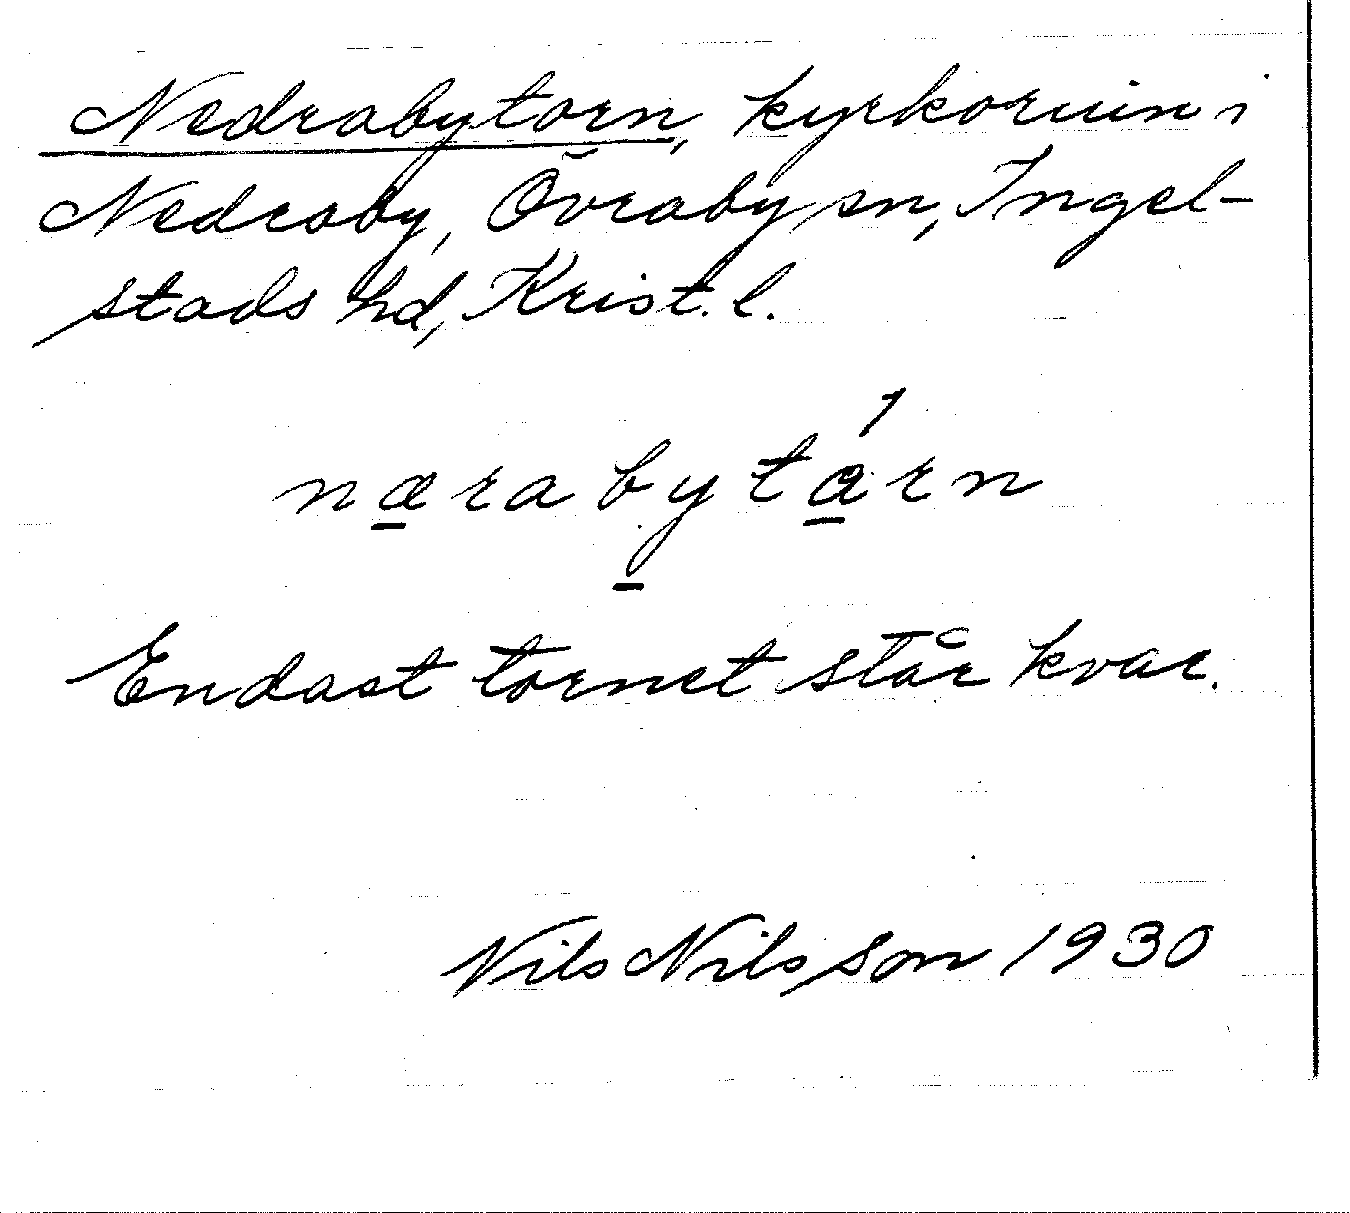 Nedrabytorn, kyrkoruin i
Nedraby, Övraby sn, Ingel-
stads hd, Krist. l.
nærabytárn
Endast tornet står kvar.
Nils Nilsson 1930